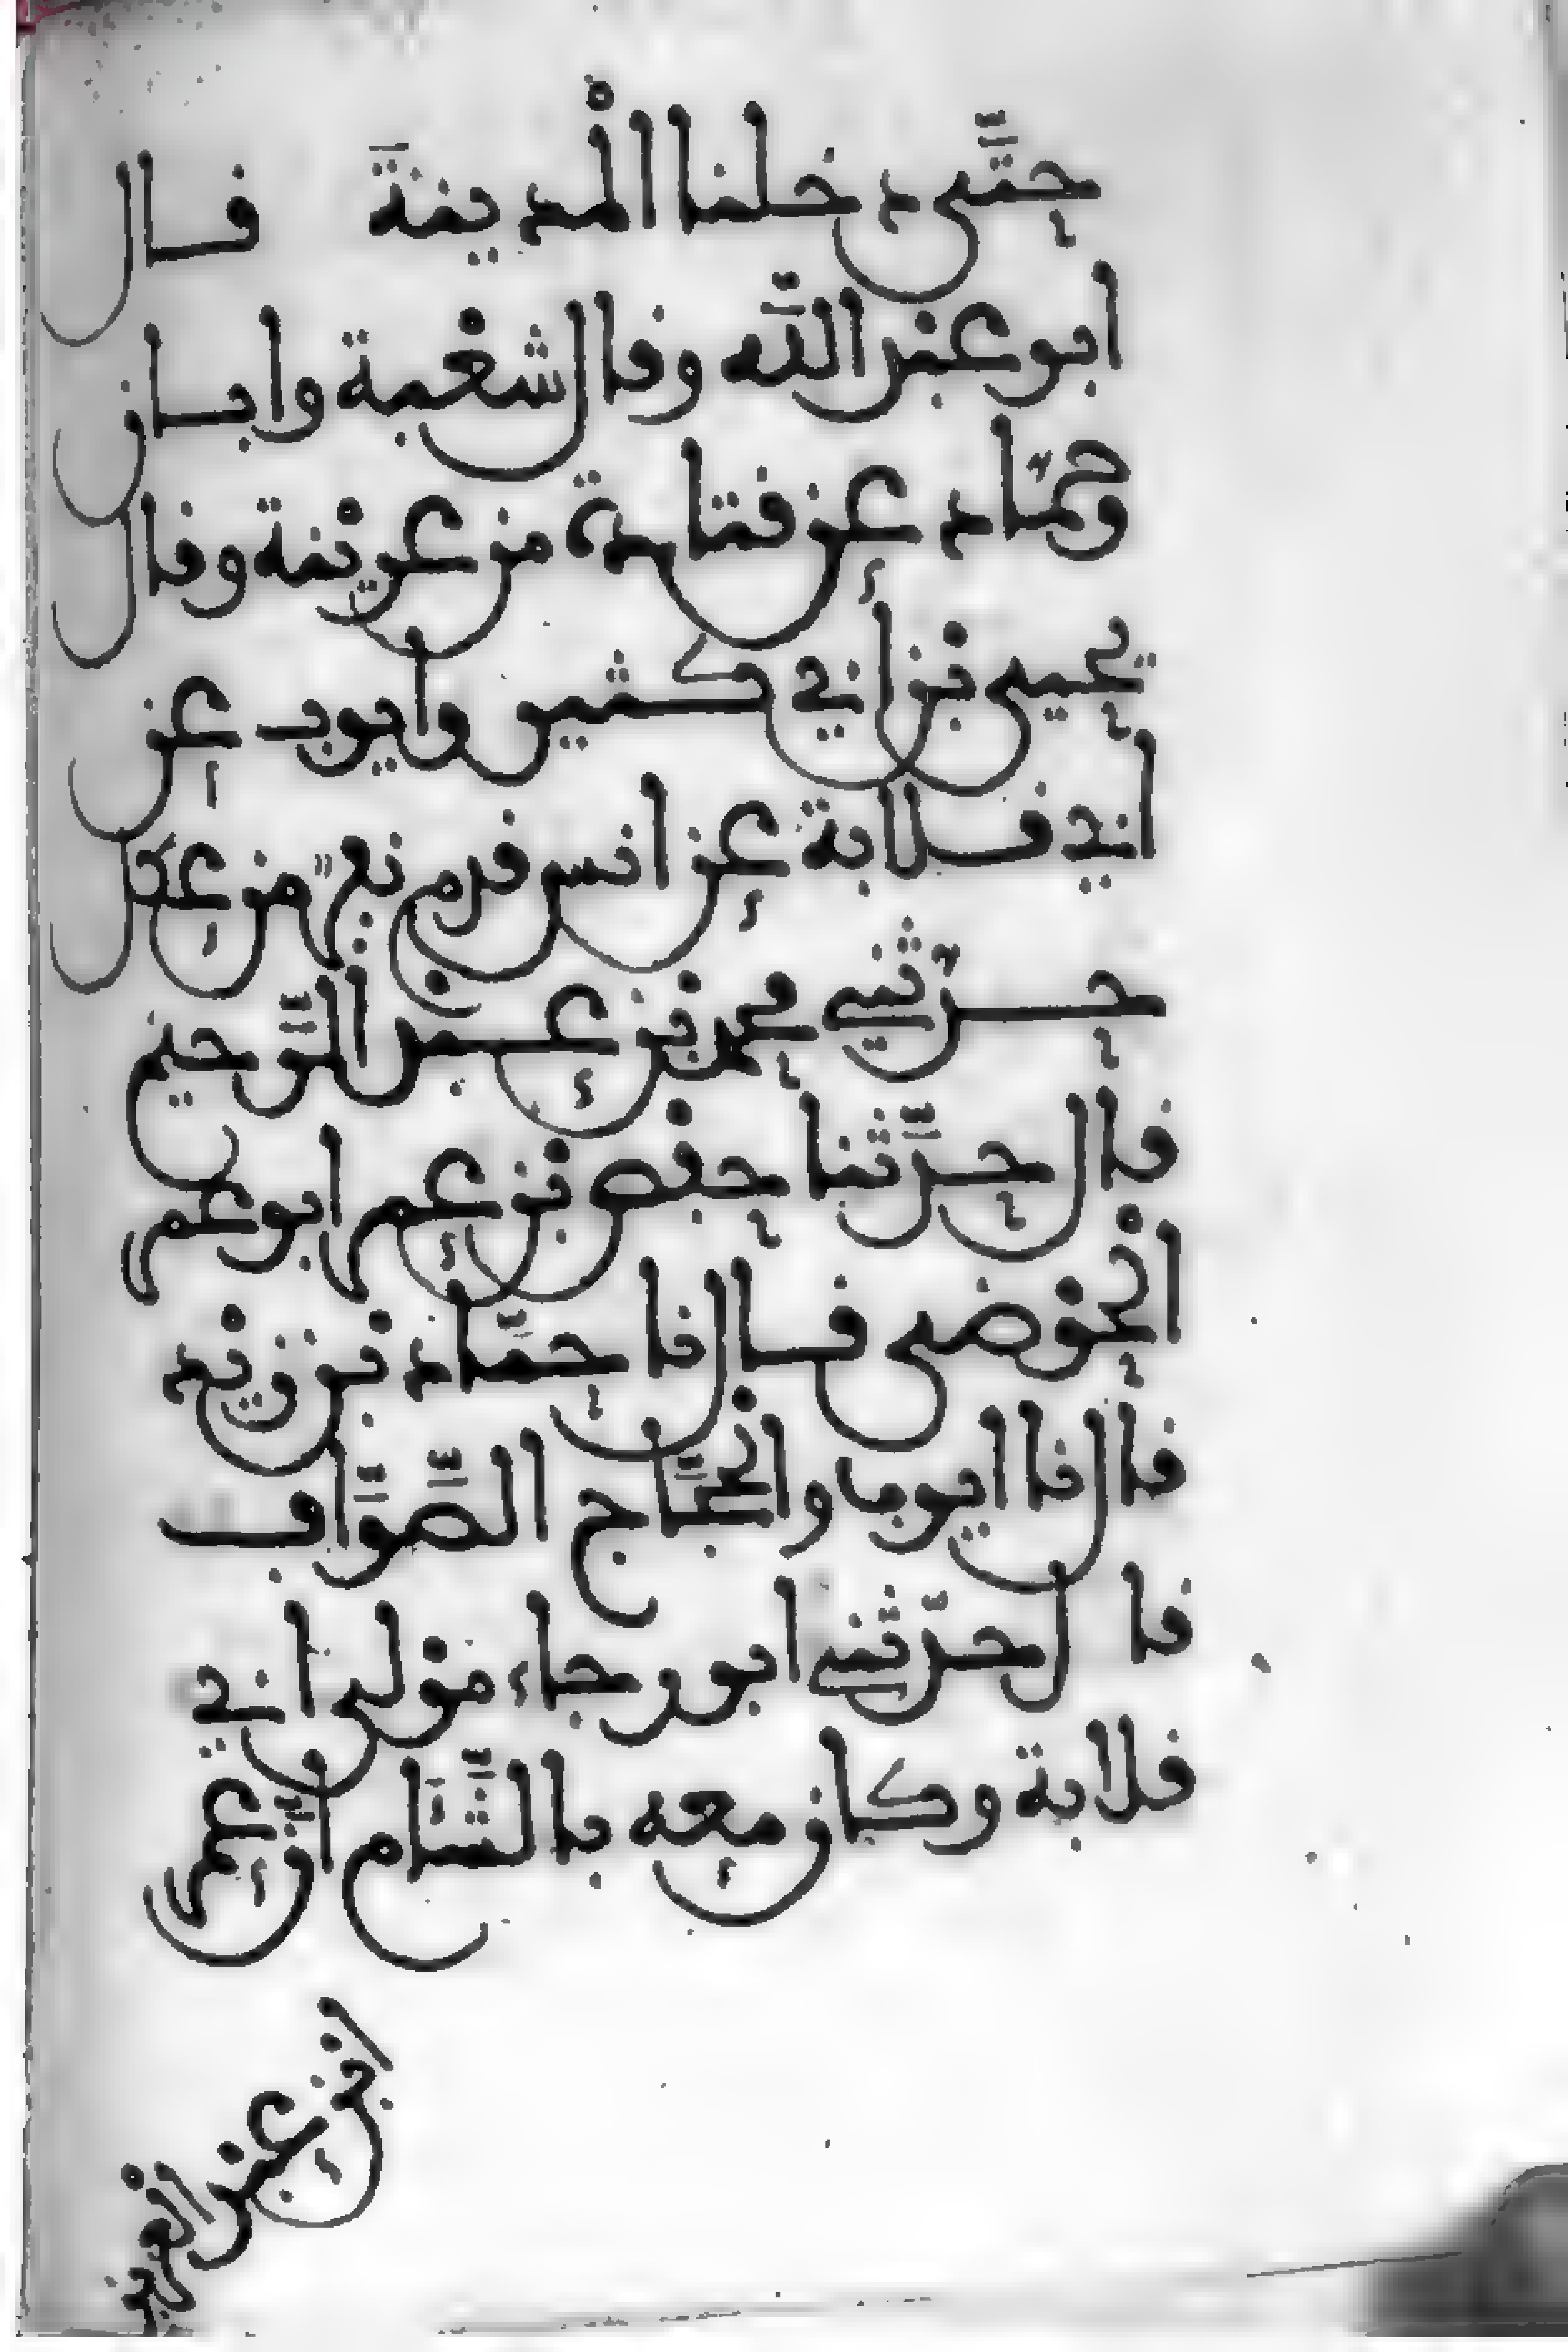 حتَّى دخلنا الْمدينةَ قال
ابو عبْد اللَّه وقال شعْبة وابان
وحمّاد عن قتادة من عريْنة وقال
يحيى بْن أبي كثير وأيوب عن
أبي قلابة عن انس قدم نفرٌ من عكل
حدّثني محمد بْن عبْد الرَّحيم
قال حدَّثنا حفْص بْن عمر ابو عمر
الْحوْضى قال نا حمَّاد بْن زيْد
قال نا ايوب والْحجَّاج الصَّوَّاف
قال حدّثني ابو رجاء موْلى ابي
قلابة وكان معه بالشَّام أنَّ عمر
ابْن عبْد الْعزيز